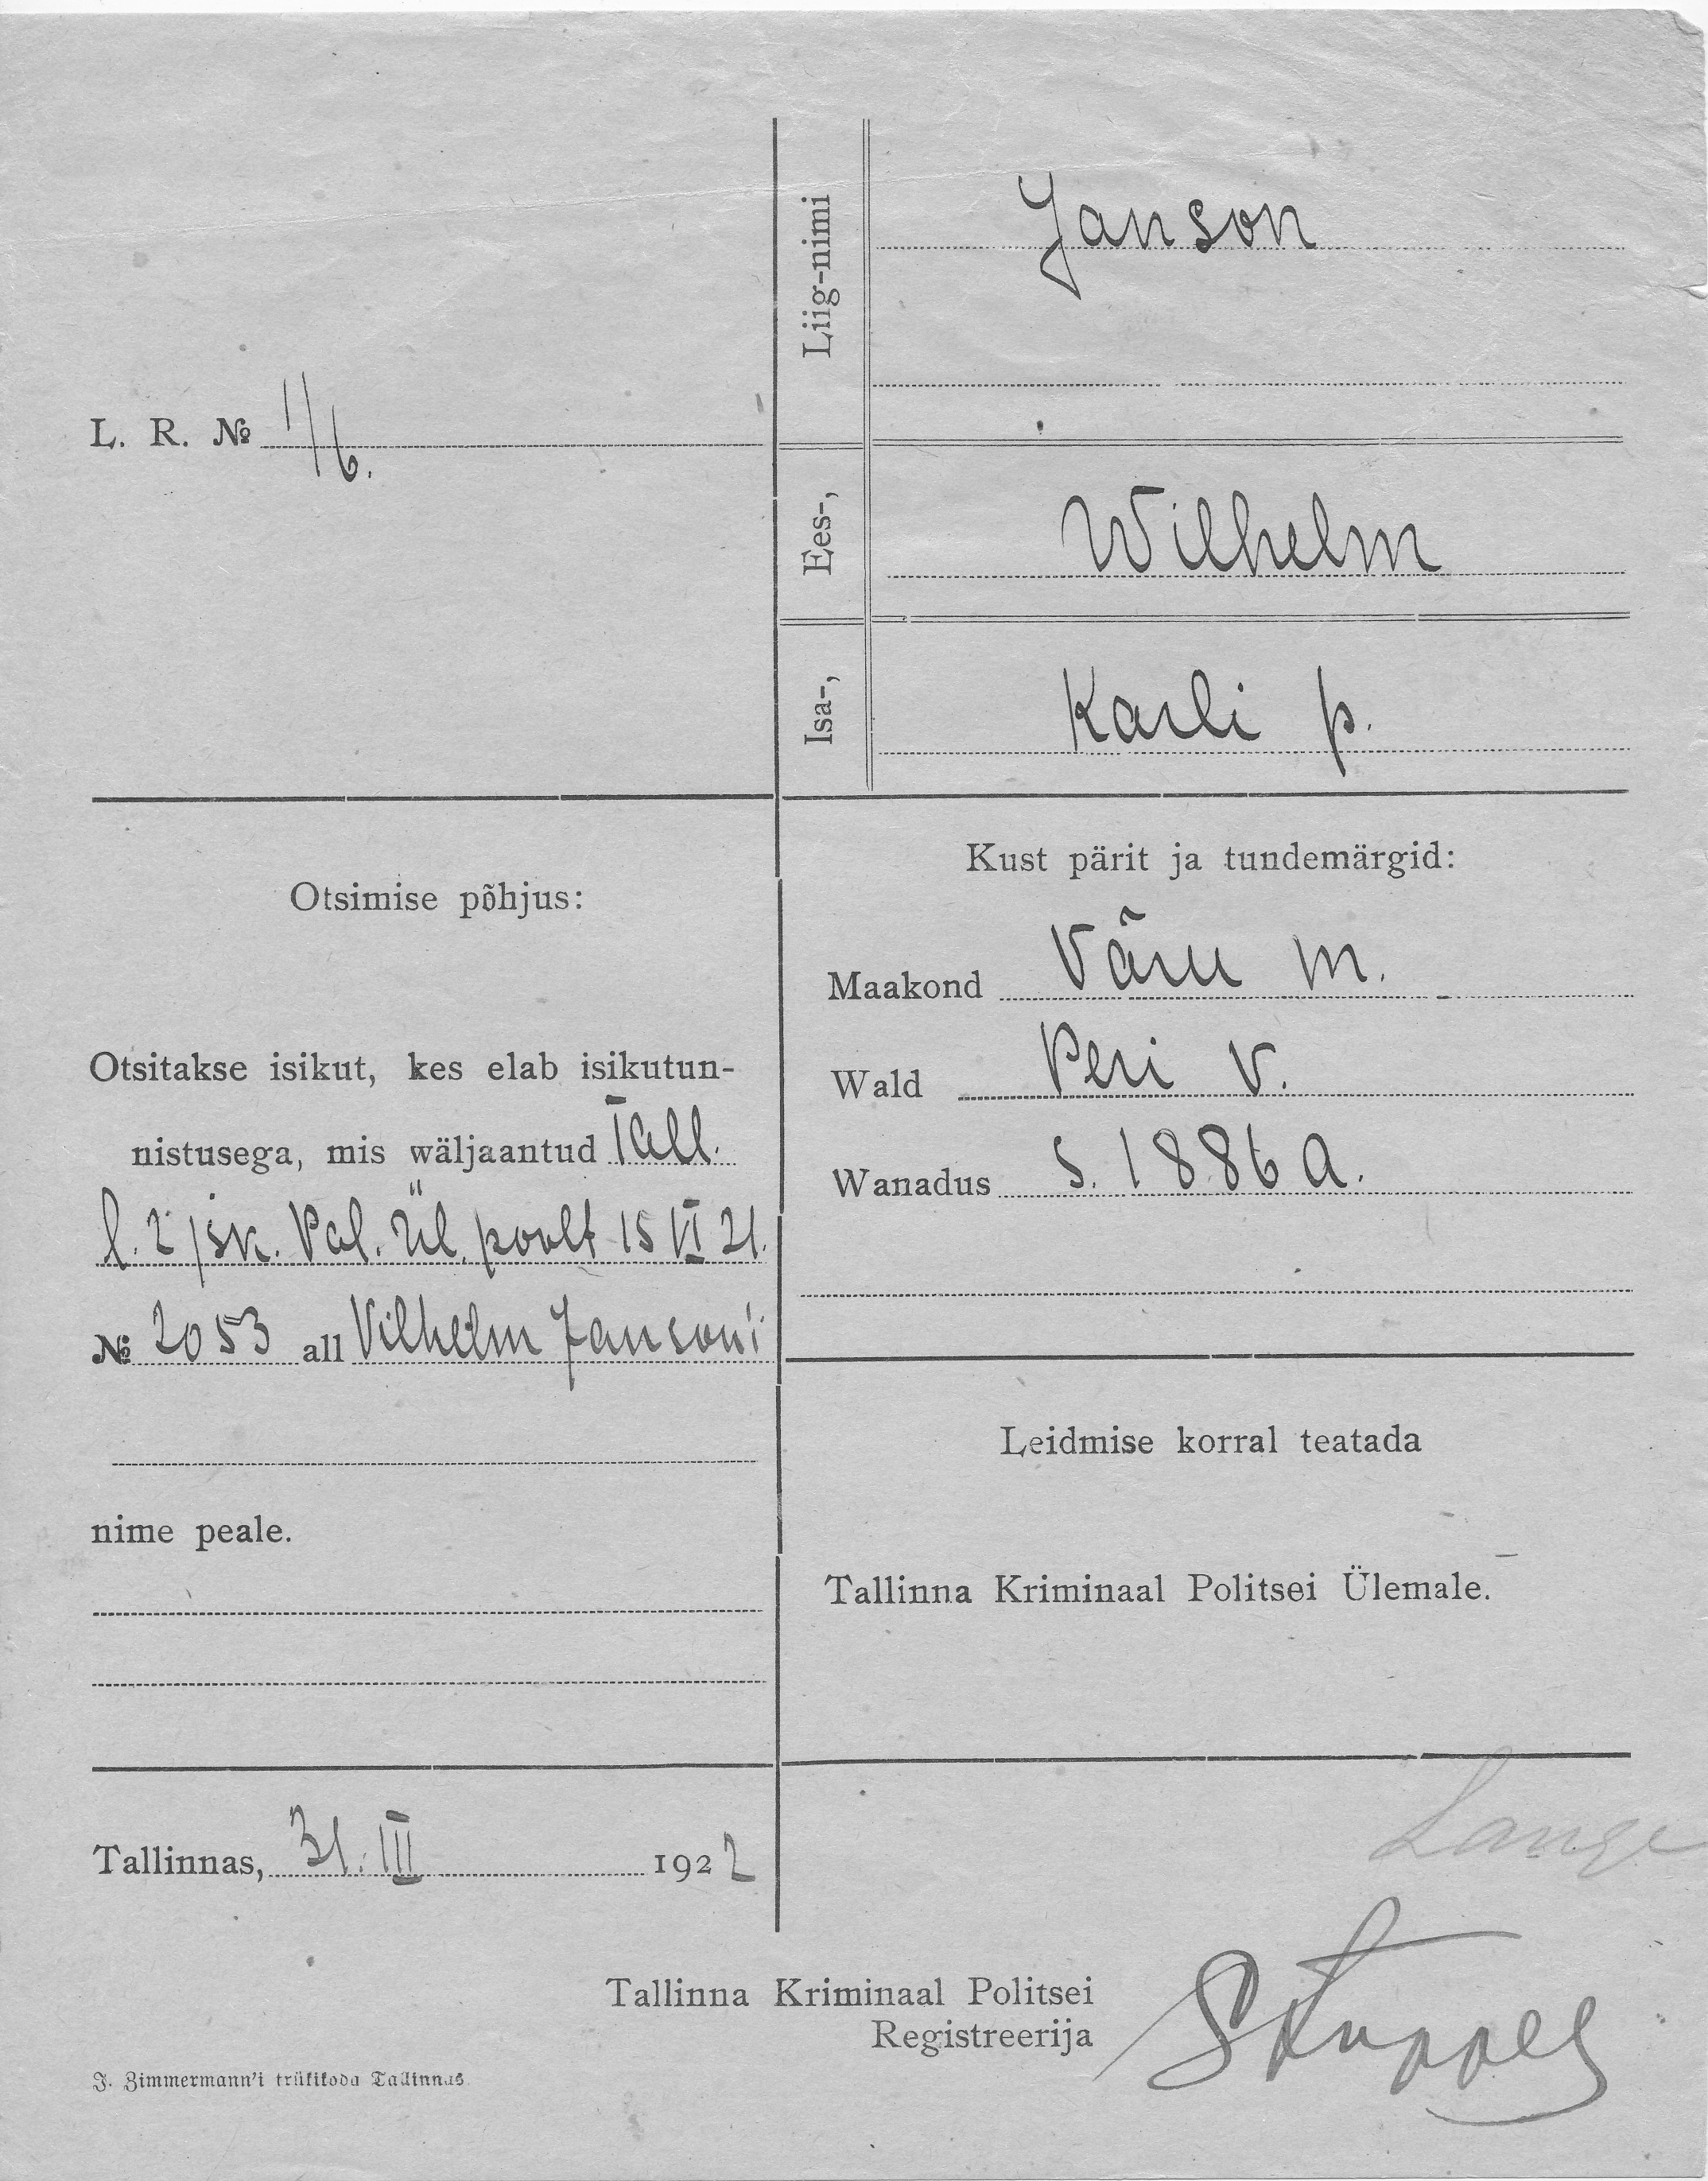 L. R. № 1/6.
Liig-nimi
Janson
Ees-,
Wilhelm
Isa-,
Karli p.
Otsimise põhjus:
Otsitakse isikut, kes elab isikutun-
nistusega, mis wäljaantud Tall.
l. 2 jsk. Pol. Ül. poolt 15 VI 21.
№ 2053 all Vilhelm Jansoni
nime peale.
Kust pärit ja tundemärgid:
Maakond Võru m.
Wald Peri v.
Wanadus s. 1886 a.
Leidmise korral teatada
Tallinna Kriminaal Politsei Ülemale.
Tallinnas, 31. III 1922
Lange
Tallinna Kriminaal Politsei
Registreerija
J. Zimmermann'i trükikoda Tallinnas.